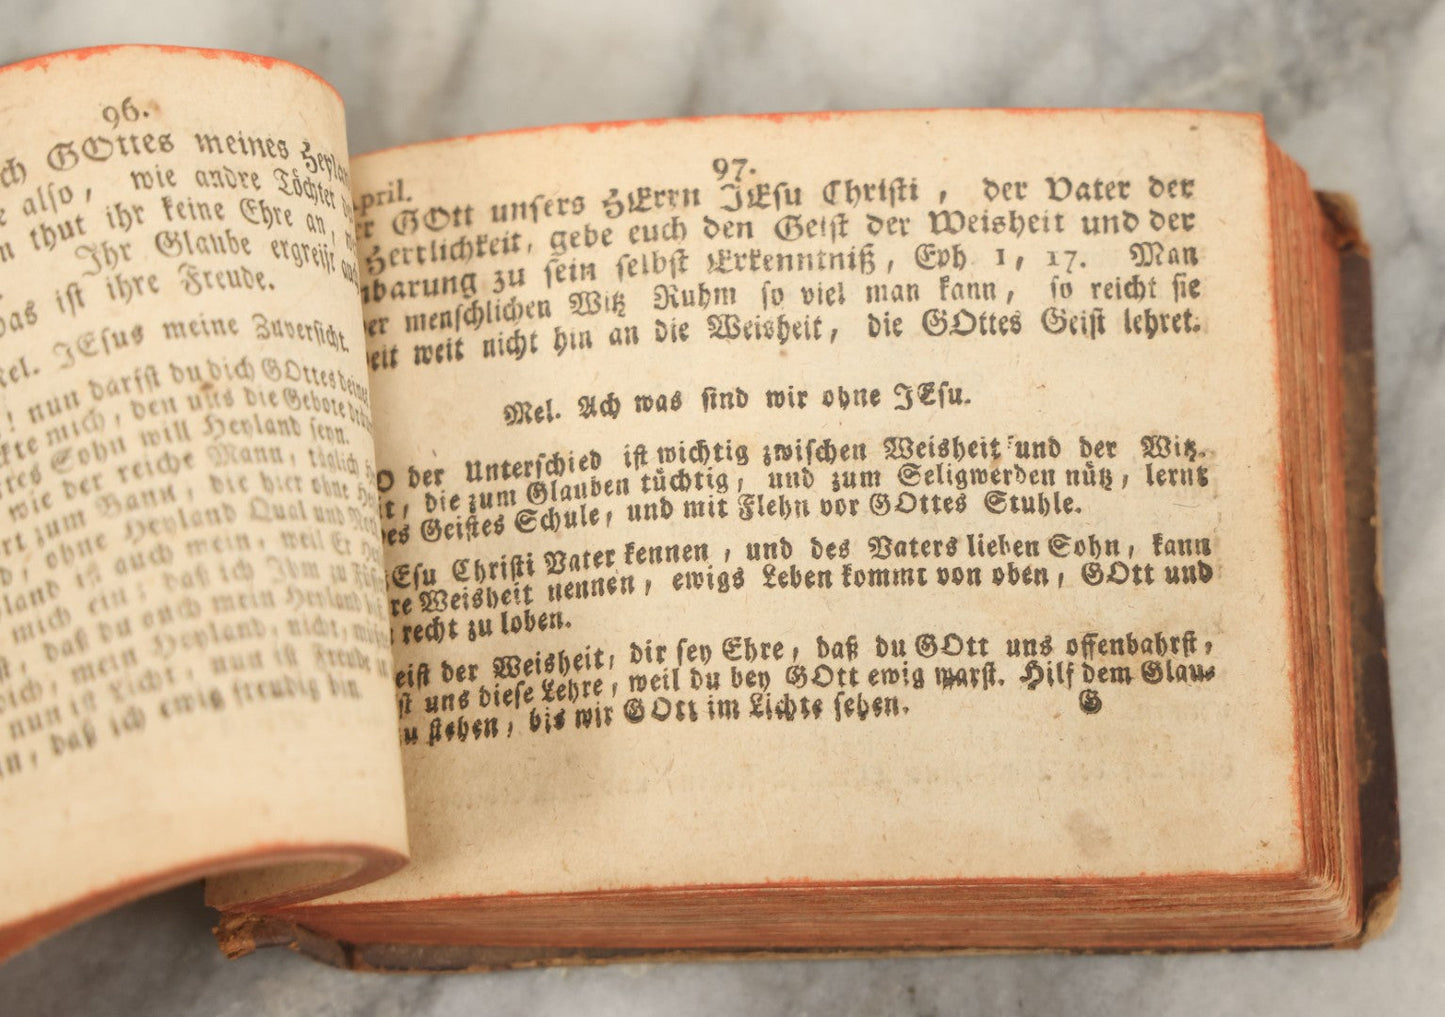 96.
ch GOttes meines Heylan
e also, wie andre Töchter
n thut ihr keine Ehre an,
Ihr Glaube ergreift
das ist ihre Freude.
Mel. JEsus meine Zuversicht.
! nun darfst du dich GOttes
kte mich, den uns die Gebote
tes Sohn will Heyland seyn.
wie der reiche Mann, täglich
rt zum Bann, die hier ohne
d, ohne Heyland Qual und
land ist auch mein, weil Er
mich ein; daß ich Ihm
st, daß du auch mein Heyland
dich, mein Heyland, nicht,
nun ist Licht, nun ist Freude
n, daß ich ewig freudig bin
97.
pril.
r GOtt unsers HErrn JEsu Christi, der Vater der
Herrlichkeit, gebe euch den Geist der Weisheit und der
nbarung zu sein selbst Erkenntniß, Eph 1, 17. Man
er menschlichen Witz Ruhm so viel man kann, so reicht sie
eit weit nicht hin an die Weisheit, die GOttes Geist lehret.
Mel. Ach was sind wir ohne JEsu.
O der Unterschied ist wichtig zwischen Weisheit und der Witz-
it, die zum Glauben tüchtig, und zum Seligwerden nütz, lernt
es Geistes Schule, und mit Flehn vor GOttes Stuhle.
JEsu Christi Vater kennen, und des Vaters lieben Sohn, kann
re Weisheit nennen, ewigs Leben kommt von oben, GOtt und
recht zu loben.
eist der Weisheit, dir sey Ehre, daß du GOtt uns offenbahrst,
st uns diese Lehre, weil du bey GOtt ewig warst. Hilf dem Glau-
u stehen, bis wir GOtt im Lichte sehen.
G